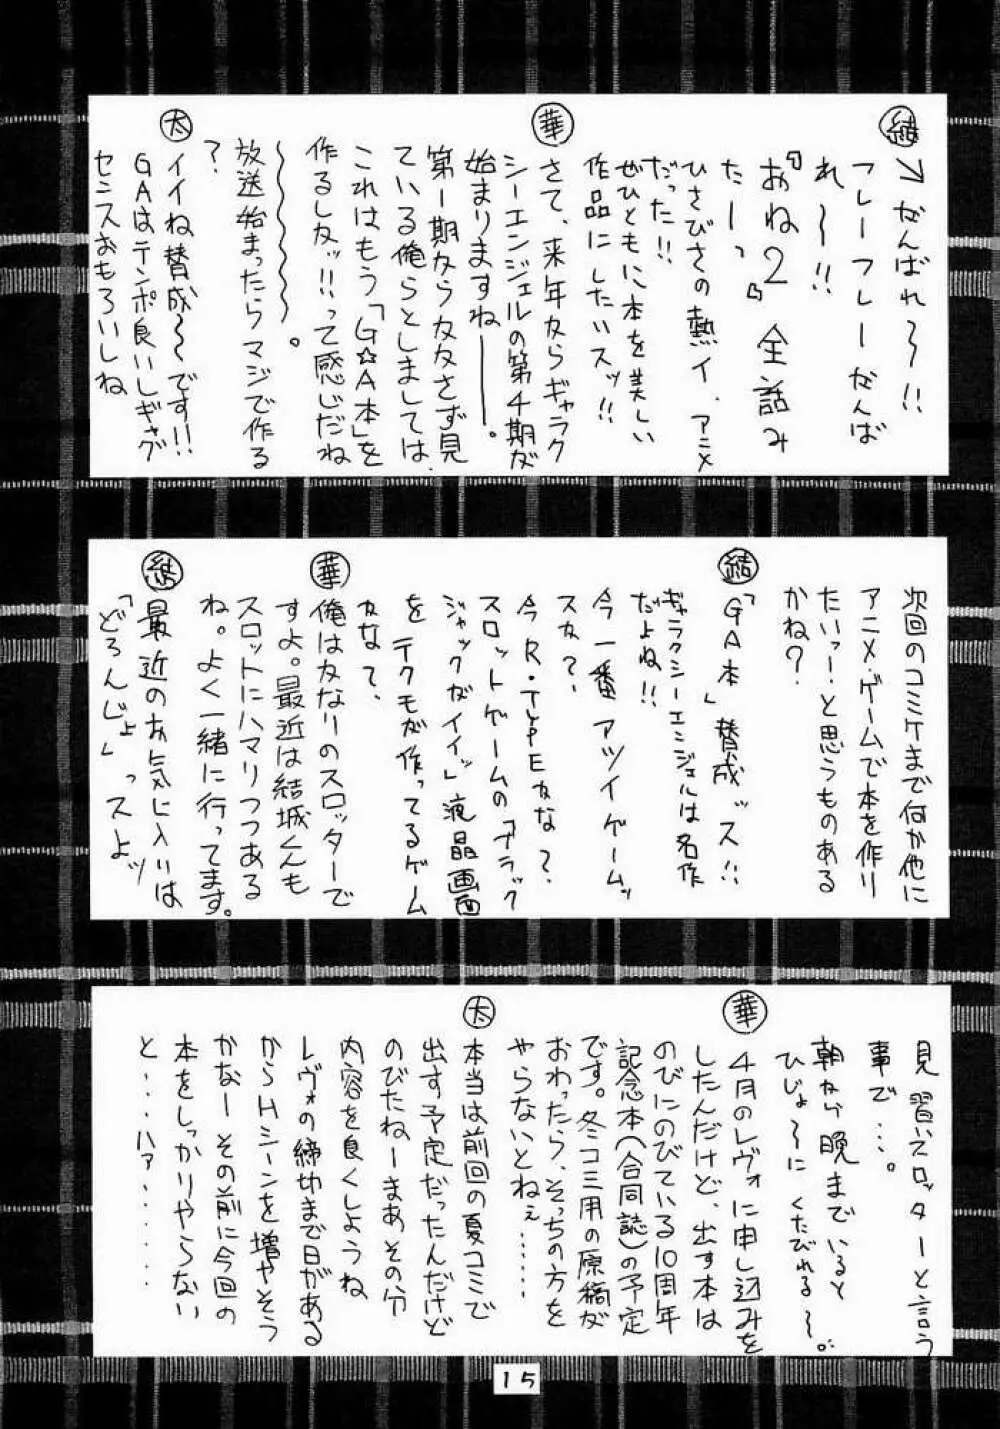 結→がんばれ〜!!
フレーフレーがんば
れ〜!!
『おね2』全話み
たーっ
ひさびさの熱イ.アニメ
だった!!
ぜひともに本を美しい
作品にしたいスッ!!
華
さて、来年からギャラク
シーエンジェルの第4期が
始まりますね――。
第一期からかかさず見
ている俺らとしましては、
これはもう「G☆A本」を
作るしかッ!!って感じだね
〜〜〜〜〜。
放送始まったらマジで作る
?
太
イイね賛成〜〜です!!
GAはテンポ良いしギャグ
センスおもろいしね
次回のコミケまで何か他に
アニメ・ゲームで本を作り
たいっー!と思うものある
かね?
結
「GA本」賛成ッス!!
ギャラクシーエンジェルは名作
だよね!!
今一番アツイゲームッ
スか?、
今R・TYPEかな?、
スロットゲームの「ブラック
ジャックがイイッ」液晶画面
を テクモが作ってるゲーム
かな?、
華
俺はかなりのスロッターで
すよ。最近は結城くんも
スロットにハマリつつある
ね。よく一緒に行ってます。
結
最近のお気に入りは
「どろんじょ」っスよッ
見習いスロッターと言う
事で…。
朝から晩までいると
ひじょ〜に くたびれる〜。
華
4月のレヴォに申し込みを
したんだけど、出す本は
のびにのびている10周年
記念本(合同誌)の予定
です。冬コミ用の原稿が
おわったら、そっちの方を
やらないとねぇ……
太
本当は前回の夏コミで
出す予定だったんだけど
のびたねーまあその分
内容を良くしようね
レヴォの締切まで日がある
からHシーンを増やそう
かなー その前に今回の
本をしっかりやらない
と‥‥ハァ‥‥‥‥
15